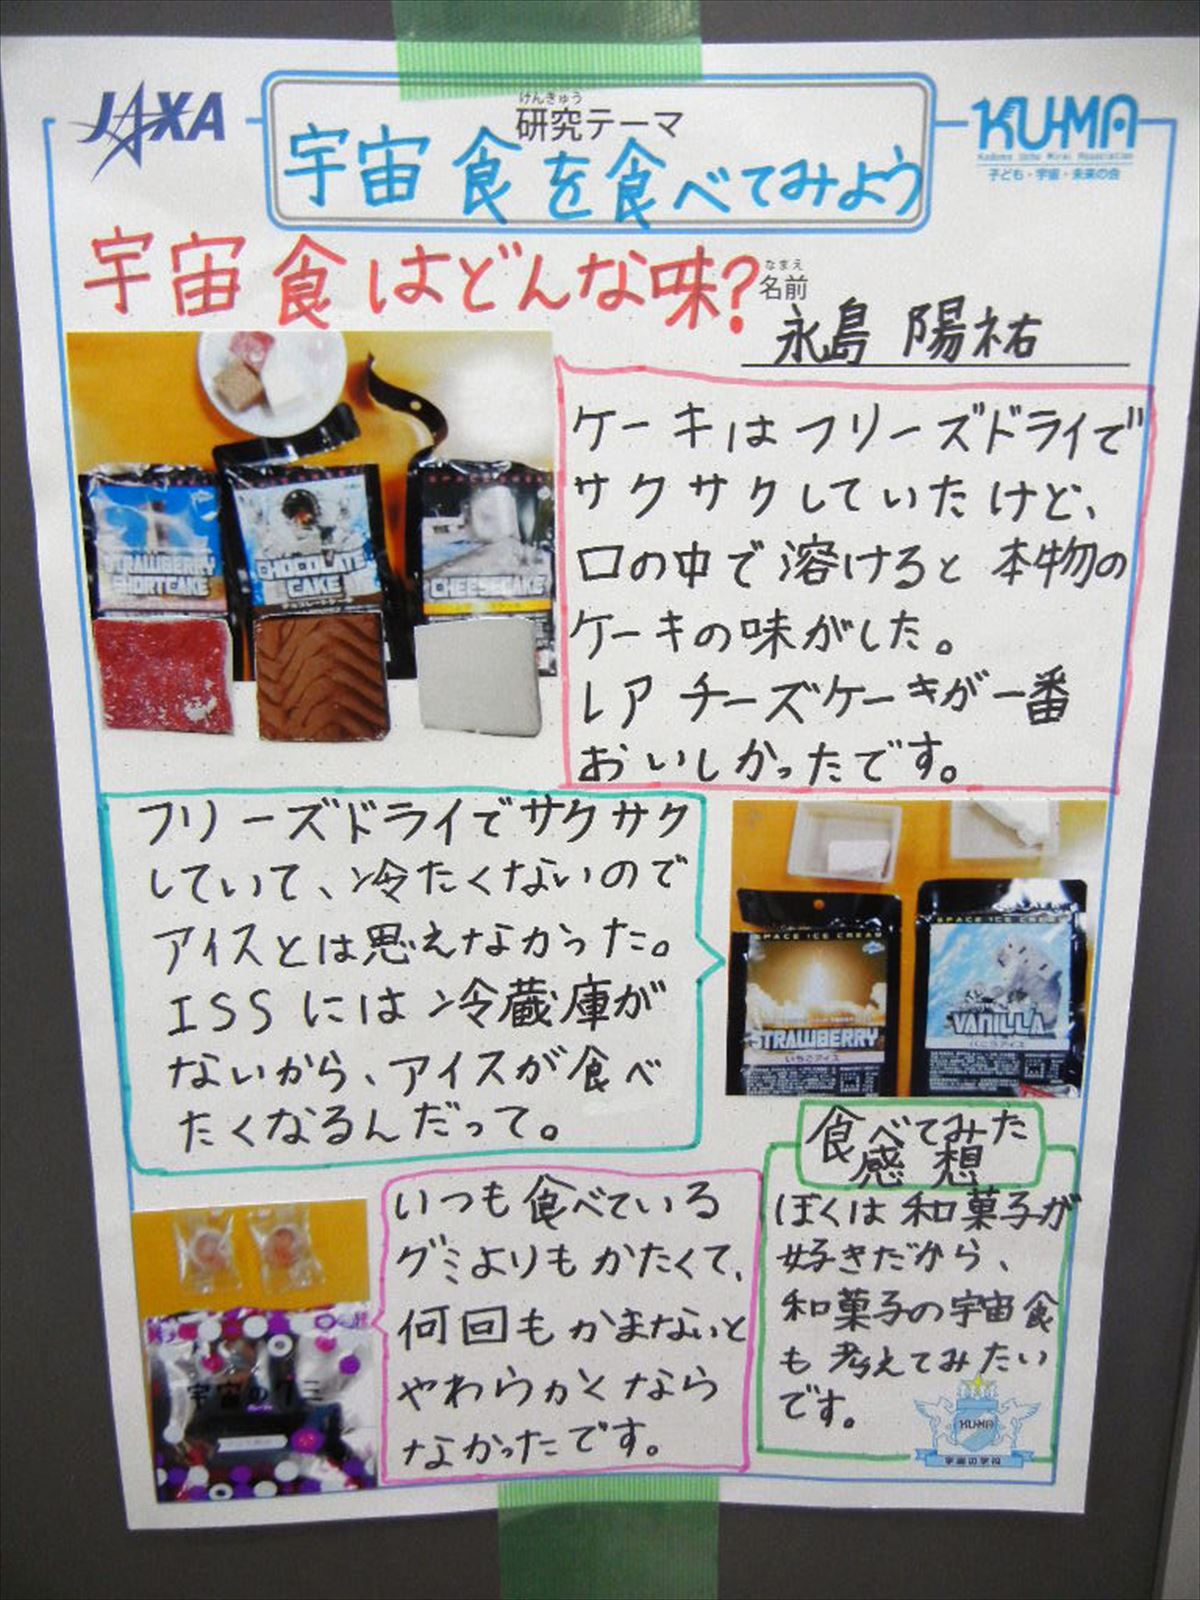 JAXA
けんきゅう
研究テーマ
KU-MA
子ども・宇宙・未来の会
宇宙食を食べてみよう
宇宙食はどんな味?
なまえ
名前
永島 陽祐
ケーキはフリーズドライで
サクサクしていたけど、
口の中で溶けると本物の
ケーキの味がした。
レアチーズケーキが一番
おいしかったです。
STRAWBERRY
SHORTCAKE
CHOCOLATE
CAKE
CHEESECAKE
フリーズドライでサクサク
していて、冷たくないので
アイスとは思えなかった。
ISSには冷蔵庫が
ないから、アイスが食べ
たくなるんだって。
SPACE ICE CREAM
STRAWBERRY
いちごアイス
SPACE ICE CREAM
VANILLA
バニラアイス
いつも食べている
グミよりもかたくて、
何回もかまないと
やわらかくなら
なかったです。
宇宙のグミ
食べてみた
感想
ぼくは和菓子が
好きだから、
和菓子の宇宙食
も考えてみたい
です。
KU-MA
宇宙の学校